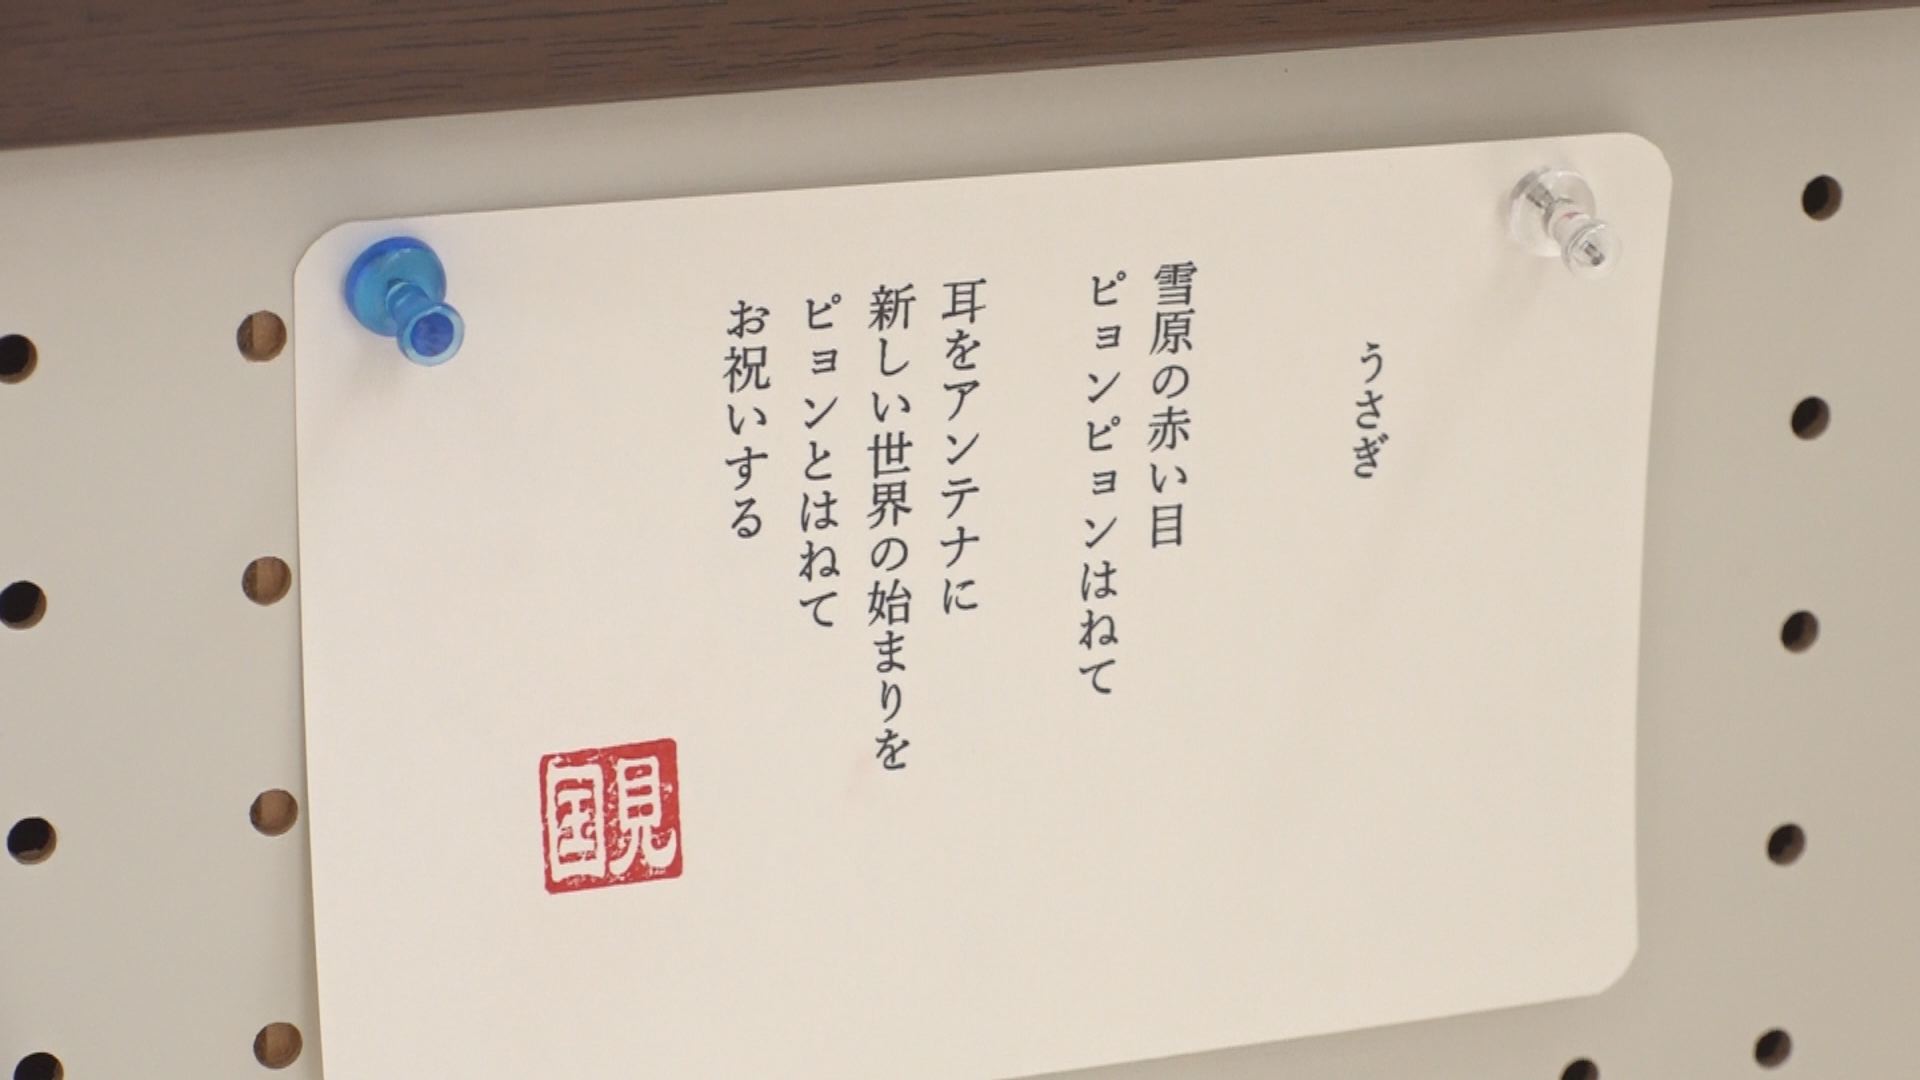 うさぎ
雪原の赤い目
ピョンピョンはねて
耳をアンテナに
新しい世界の始まりを
ピョンとはねて
お祝いする
見国